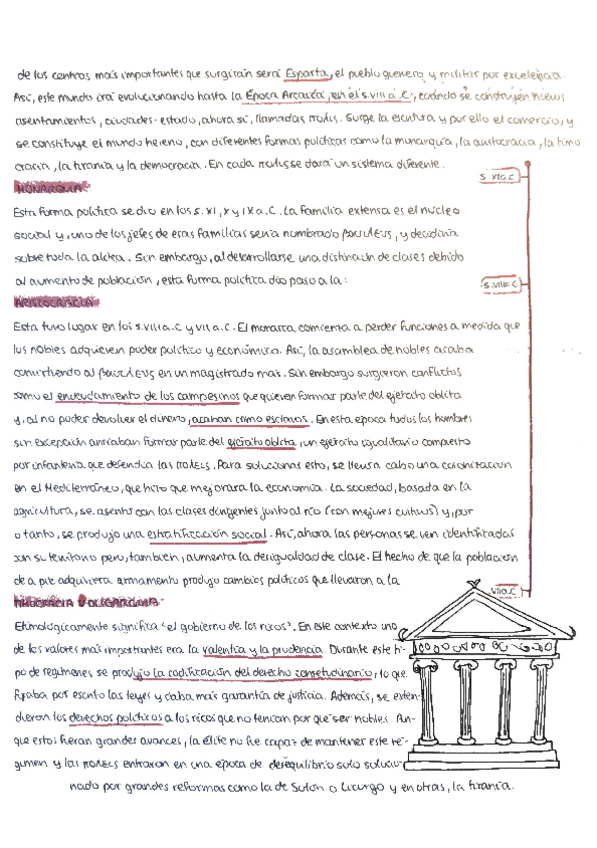 de los centros más importantes que surgirán será Esparta, el pueblo guerrero y militar por excelencia.
Así, este mundo irá evolucionando hasta la Época Arcaica, en el s.VIII a.C, cuándo se construyen nuevos
asentamientos, ciudades-estado, ahora sí, llamadas πολις. Surge la escritura y por ello el comercio, y
se constituye el mundo heleno, con diferentes formas políticas como la monarquía, la aristocracia, la timo
cracia, la tiranía y la democracia. En cada πολις se dará un sistema diferente.
S. XI a.C
MONARQUIA
Esta forma política se dio en los s. XI, X y IX a.C. La familia extensa es el núcleo
social y, uno de los jefes de esas familias sería nombrado βασιλευς, y decidiría
sobre toda la aldea. Sin embargo, al desarrollarse una distinción de clases debido
al aumento de población, esta forma política dio paso a la:
S. VIII a.C
ARISTOCRACIA
Esta tuvo lugar en los s.VIII a.C y VII a.C. El monarca comienza a perder funciones a medida que
los nobles adquieren poder político y económico. Así, la asamblea de nobles acaba
convirtiendo al βασιλευς en un magistrado más. Sin embargo surgieron conflictos
como el endeudamiento de los campesinos que querían formar parte del ejército oblita
y, al no poder devolver el dinero, acaban como esclavos. En esta época todos los hombres
sin excepción ansiaban formar parte del ejército oblita, un ejército igualitario compuesto
por infantería que defendía las πολεις. Para solucionar esto, se lleva a cabo una colonización
en el Mediterráneo, que hizo que mejorara la economía. La sociedad, basada en la
agricultura, se asentó con las clases dirigentes junto al río (con mejores cultivos) y, por
o tanto, se produjo una estratificación social. Así, ahora las personas se ven identificadas
con su territorio pero, también, aumenta la desigualdad de clase. El hecho de que la población
de a pie adquiriera armamento produjo cambios políticos que llevaron a la
VII a.C
TIMOCRACIA U OLIGARQUIA
Etimológicamente significa "el gobierno de los ricos". En este contexto uno
de los valores más importantes era la valentía y la prudencia. Durante este ti-
po de regímenes se produjo la codificación del derecho consetudinario, lo que
fijaba por escrito las leyes y daba más garantía de justicia. Además, se exten-
dieron los derechos políticos a los ricos que no tenían por qué ser nobles. Aun-
que estos fueran grandes avances, la élite no fue capaz de mantener este ré-
gimen y las πολεις entraron en una época de desequilibrio solo solucio-
nado por grandes reformas como la de Solón o Licurgo y en otras, la tiranía.